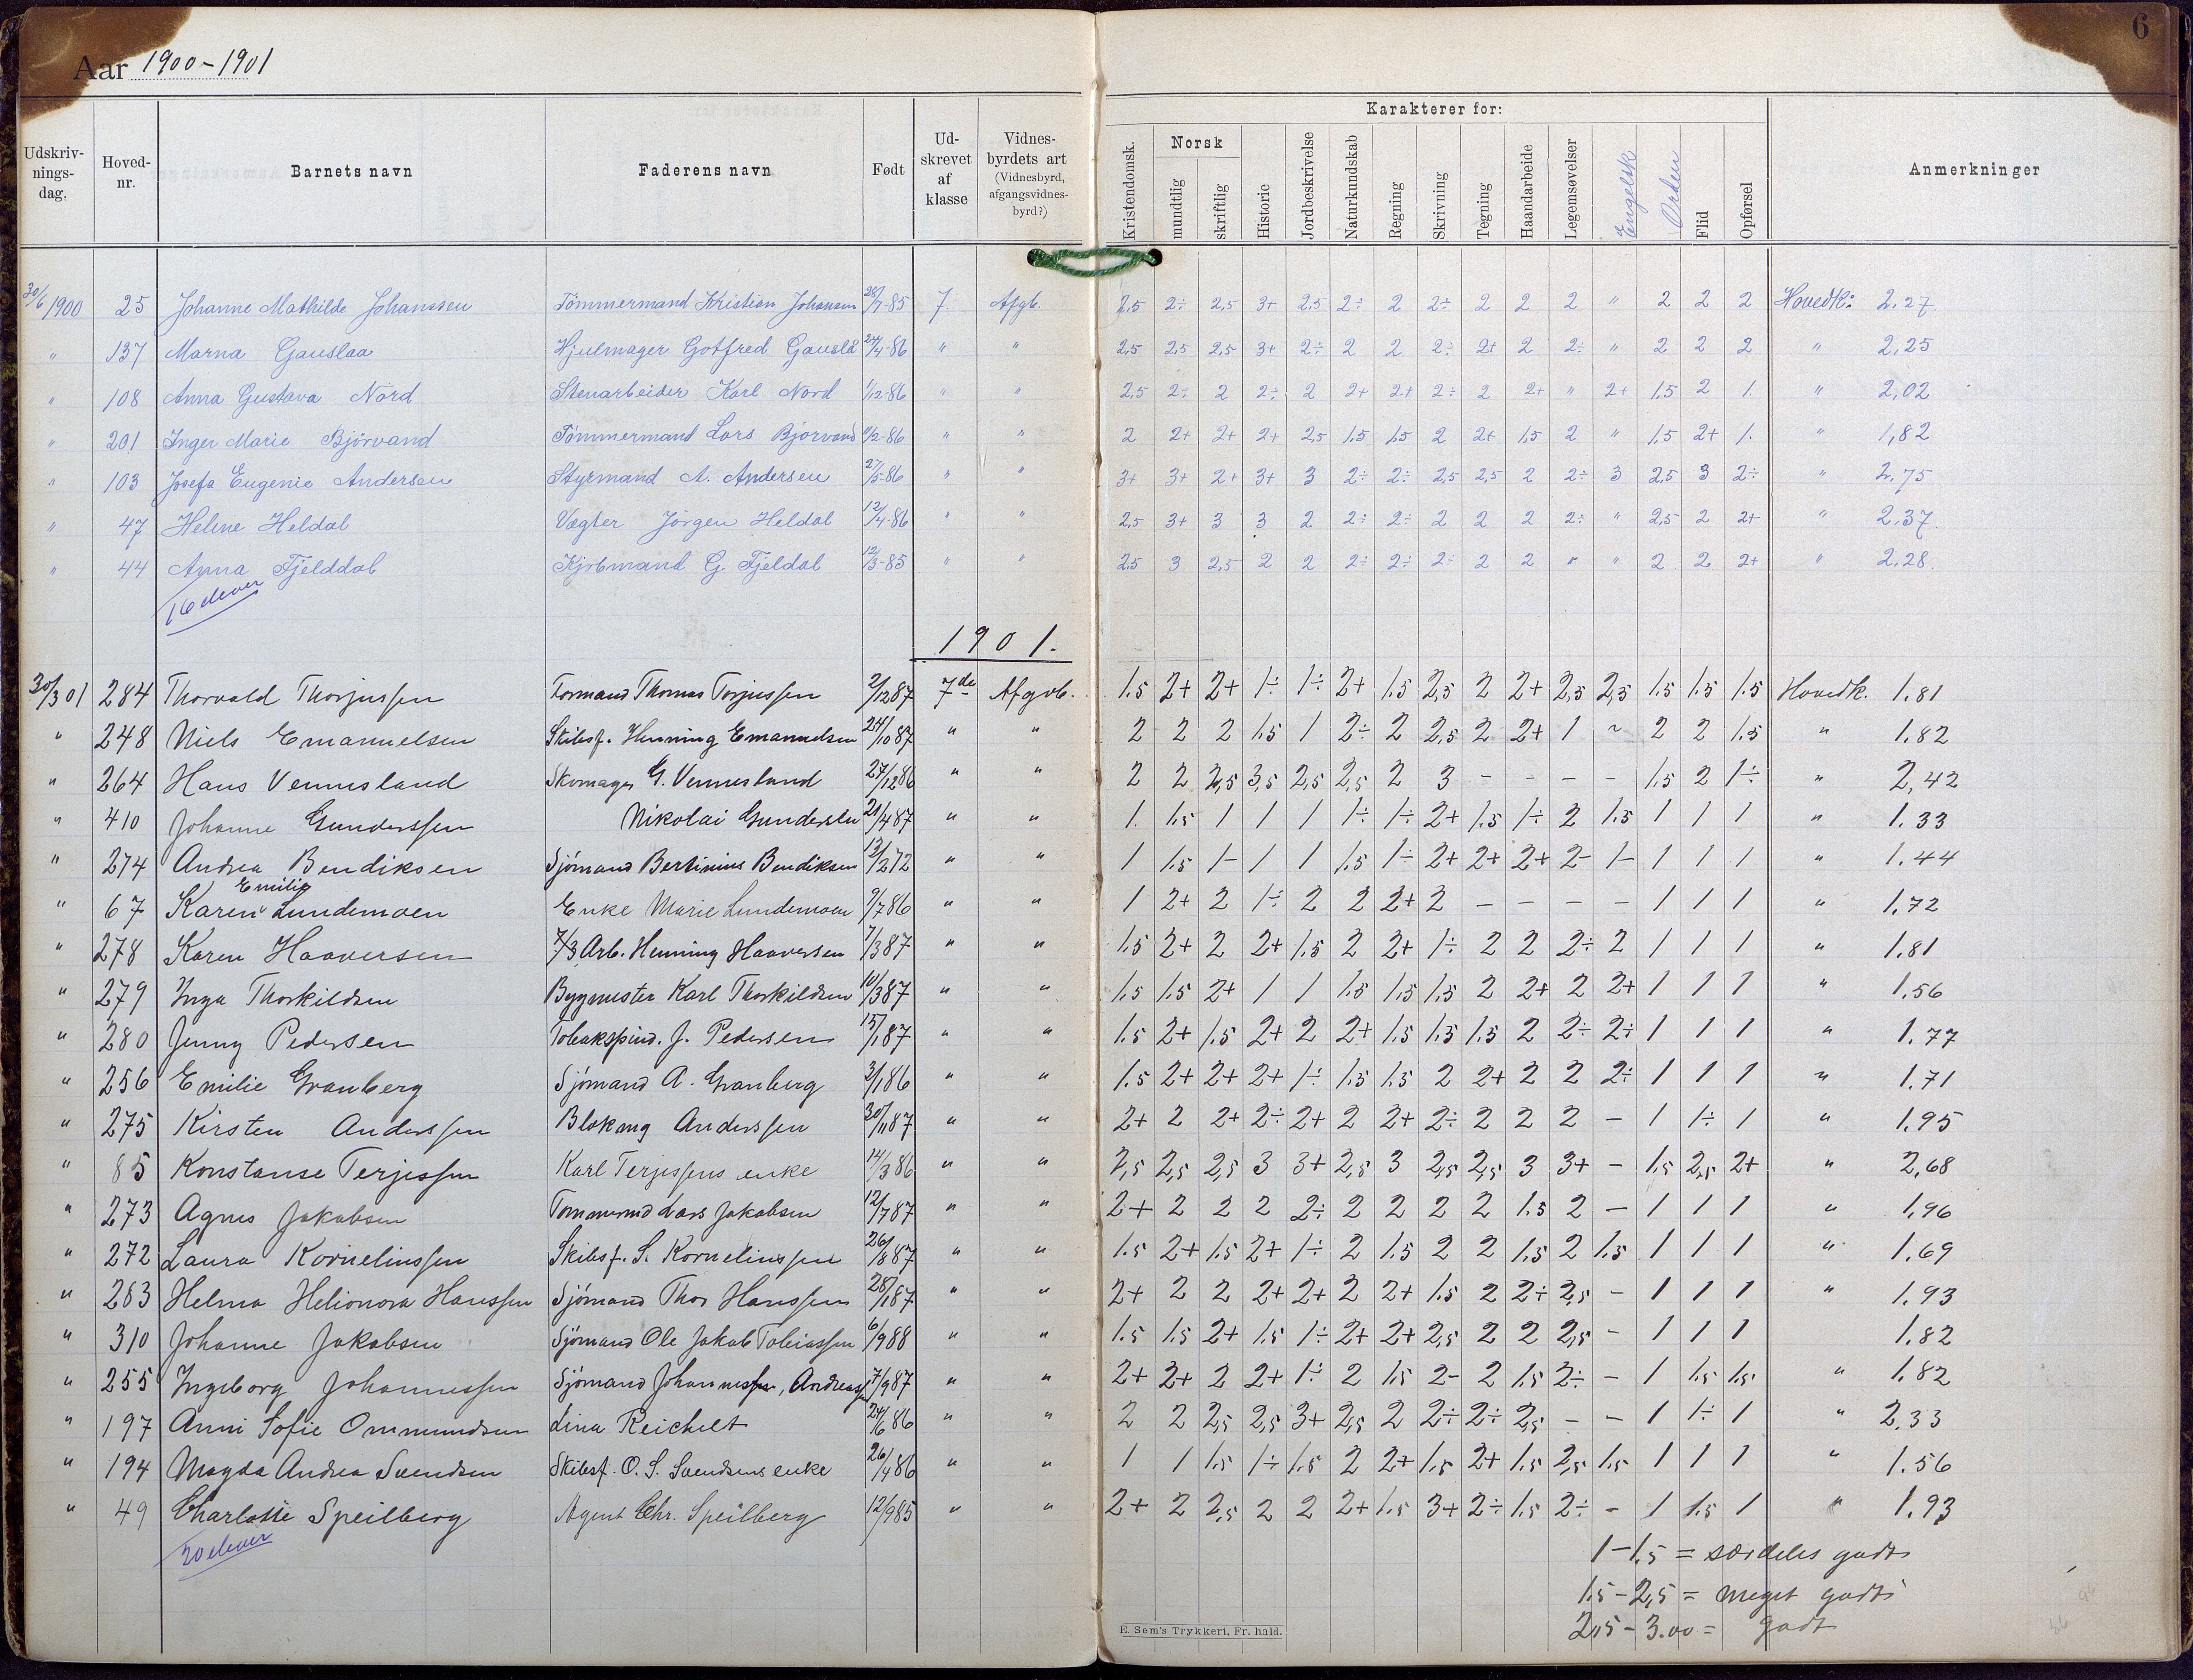 6
Aar 1900-1901
Karakterer for:
Udskriv-nings-dag. Hoved-nr. Barnets navn Faderens navn Født Ud-skrevet af klasse Vidnes-byrdets art (Vidnesbyrd, afgangsvidnes-byrd?) Kristendomsk. Norsk mundtlig skriftlig Historie Jordbeskrivelse Naturkundskab Regning Skrivning Tegning Haandarbeide Legemsøvelser Engelsk Orden Flid Opførsel Anmerkninger
30/6 1900 25 Johanne Mathilde Johanssen Tømmermand Kristian Johansen 28/7-85 7. Afgb. 2,5 2÷ 2,5 3+ 2,5 2÷ 2 2÷ 2 2 2 " 2 2 2 Hovedk: 2,27.
" 137 Marna Gauslaa Hjulmager Gotfred Gauslå 24/4-86 " " 2,5 2,5 2,5 3+ 2÷ 2 2 2÷ 2+ 2 2÷ " 2 2 2 " 2,25
" 108 Anna Gustava Nord Stenarbeider Karl Nord 1/12-86 " " 2,5 2÷ 2 2÷ 2 2+ 2+ 2÷ 2 2+ " 2+ 1,5 2 1. " 2,02
" 201 Inger Marie Bjørvand Tømmermand Lars Bjørvand 11/2-86 " " 2 2+ 2+ 2+ 2,5 1,5 1,5 2 2+ 1,5 2 " 1,5 2+ 1. " 1,82
" 103 Josefa Eugenie Andersen Styrmand A. Andersen 27/5-86 " " 3+ 3+ 2+ 3+ 3 2÷ 2÷ 2,5 2,5 2 2÷ 3 2,5 3 2÷ " 2,75
" 47 Helene Heldal Vægter Jørgen Heldal 12/4-86 " " 2,5 3+ 3 3 2 2÷ 2÷ 2 2 2 2÷ " 2,5 2 2+ " 2,37.
" 44 Anna Fjelddal Kjømand G. Fjeldal 12/3-85 " " 2,5 3 2,5 2 2 2÷ 2÷ 2÷ 2 2 " " 2 2 2+ " 2,28.
16 elever
1901.
30/3 01 284 Thorvald Thorjussen Formand Thomas Torjussen 2/12 87 7de Afgvb. 1.5 2+ 2+ 1÷ 1÷ 2+ 1.5 2,5 2 2+ 2,5 2,5 1.5 1.5 1.5 Hovedk. 1.81
" 248 Niels Emanuelsen Skibsf. Henning Emanuelsen 24/10 87 " " 2 2 2 1.5 1 2÷ 2 2,5 2 2+ 1 ~ 2 2 1.5 " 1.82
" 264 Hans Vennesland Skomager G. Vennesland 27/12 86 " " 2 2 2,5 3,5 2,5 2,5 2 3 - - - - 1.5 2 1÷ " 2,42
" 410 Johanne Gunderssen Nikolai Gundersen 21/4 87 " " 1. 1.5 1 1 1 1÷ 1÷ 2+ 1.5 1÷ 2 1.5 1 1 1 " 1.33
" 274 Andrea Bendiksen Sjömand Bertinius Bendiksen 13/2 72 " " 1 1.5 1- 1 1 1.5 1÷ 2+ 2+ 2+ 2- 1- 1 1 1 " 1.44
" 67 Karen Emilie Lundemoen Enke Marie Lundemoen 9/7 86 " " 1 2+ 2 1÷ 2 2 2+ 2 - - - - 1 1 1 " 1.72
" 278 Karen Haaversen 7/3 Arb. Henning Haaversen 7/3 87 " " 1.5 2+ 2 2+ 1.5 2 2+ 1÷ 2 2 2÷ 2 1 1 1 " 1.81
" 279 Inga Thorkildsen Bygmester Karl Thorkildsen 10/3 87 " " 1.5 1.5 2+ 1 1 1.5 1.5 1.5 2 2+ 2 2+ 1 1 1 " 1.56
" 280 Jenny Pedersen Tobakspind. J. Pedersen 15/1 87 " " 1.5 2+ 1.5 2+ 2 2+ 1.5 1.5 1.5 2 2÷ 2÷ 1 1 1 " 1.77
" 256 Emilie Granberg Sjömand A. Granberg 3/1 86 " " 1.5 2+ 2+ 2+ 1÷ 1.5 1.5 2 2+ 2 2 2÷ 1 1 1 " 1.71
" 275 Kirsten Anderssen Blokmg Anderssen 30/11 87 " " 2+ 2 2+ 2÷ 2+ 2 2+ 2÷ 2 2 2 - 1 1÷ 1 " 1.95
" 85 Konstanse Terjessen Karl Terjessens enke 14/3 86 " " 2,5 2,5 2,5 3 3+ 2,5 3 2,5 2,5 3 3+ - 1.5 2,5 2+ " 2,68
" 273 Agnes Jakobsen Tømmermd Lars Jakobsen 12/7 87 " " 2+ 2 2 2 2÷ 2 2 2 2 1.5 2 - 1 1 1 " 1.96
" 272 Laura Korneliussen Skibsf. S. Korneliussen 26/8 87 " " 1.5 2+ 1.5 2+ 1÷ 2 1.5 2 2 1.5 2 1.5 1 1 1 " 1.69
" 263 Helma Helionora Hanssen Sjömand Thor Hanssen 28/1 87 " " 2+ 2 2 2+ 2+ 2 2+ 1.5 2 2÷ 2,5 - 1 1 1 " 1.93
" 310 Johanne Jakobsen Sjömand Ole Jakob Tobiassen 6/9 88 " " 1.5 1.5 2+ 1.5 1÷ 2+ 2+ 2,5 2 2 2,5 - 1 1 1 1.82
" 255 Ingeborg Johannessen Sjömand Johannessen, Andreassen 7/9 87 " " 2+ 2+ 2 2+ 1÷ 2 1.5 2- 2 1.5 2÷ - 1 1.5 1.5 " 1.82
" 197 Anni Sofie Ommundsen Lina Reichelt 24/6 86 " " 2 2 2,5 2,5 3+ 2,5 2 2÷ 2÷ 2,5 - - 1 1÷ 1 " 2.33
" 194 Magda Andrea Svendsen Skibsf. O. S. Svendsens enke 26/4 86 " " 1 1 1.5 1÷ 1.5 2 2+ 1.5 2+ 1.5 2,5 1.5 1 1 1 " 1.56
" 49 Charlotte Speilberg Agent Chr. Speilberg 12/9 85 " " 2+ 2 2,5 2 2 2+ 1.5 3+ 2÷ 1.5 2÷ - 1 1.5 1 " 1.93
20 elever
1-1,5 = særdeles godt
1.5-2,5 = meget godt
2,5-3.00 = godt
E. Sem's Trykkeri, Fr. hald.